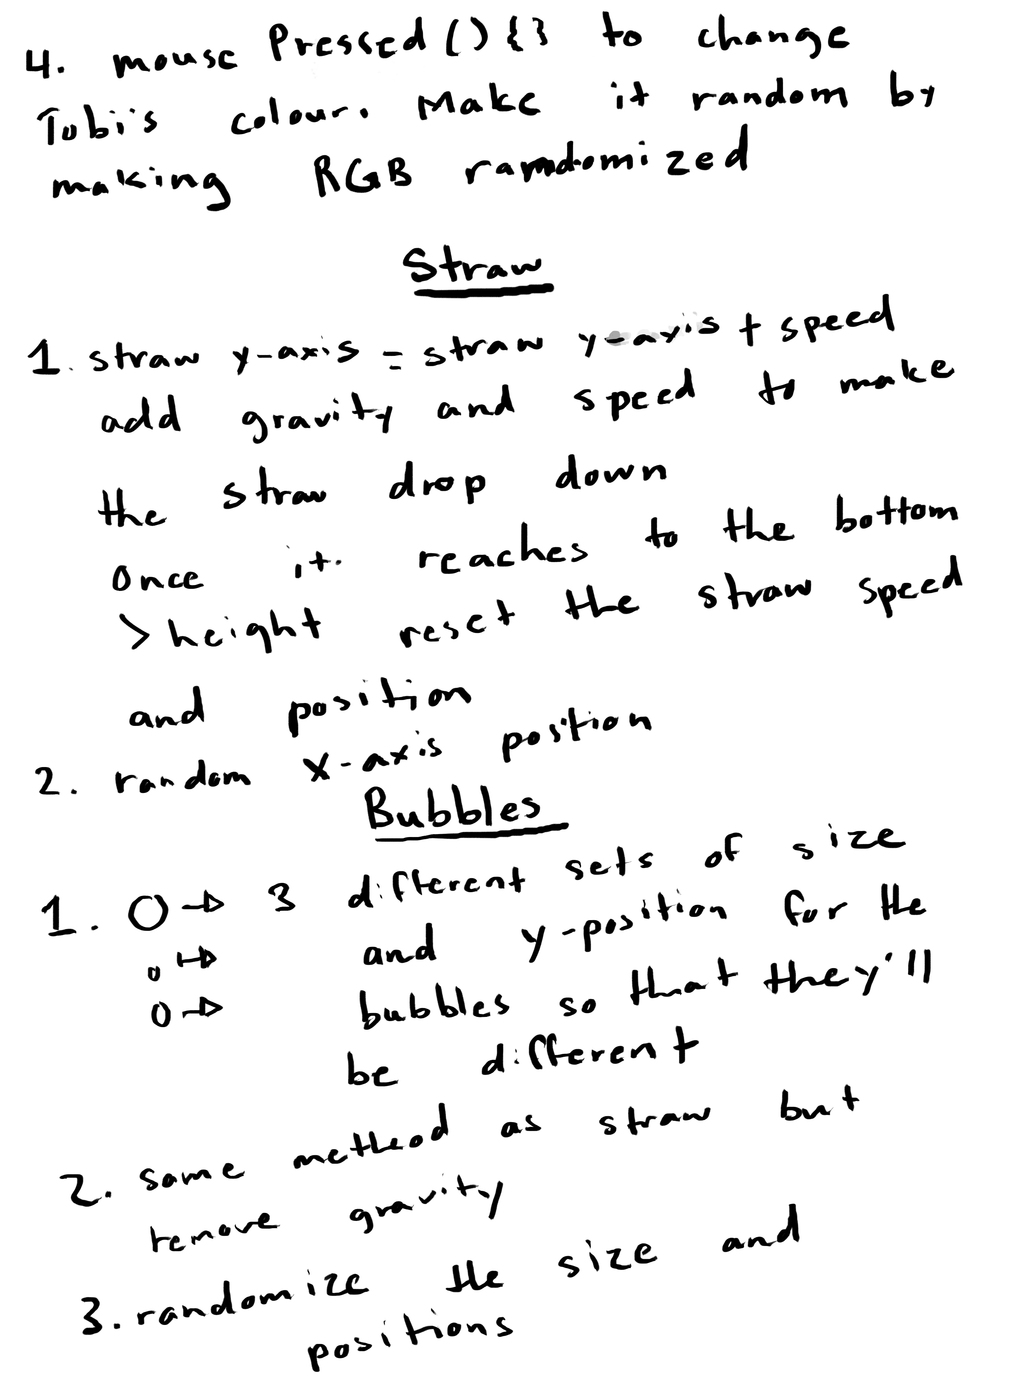 4. mousePressed(){} to change
Tobi's colour. Make it random by
making RGB ramdomized
Straw
1. straw y-axis = straw y-axis + speed
add gravity and speed to make
the straw drop down
Once it reaches to the bottom
> height reset the straw speed
and position
2. random x-axis position
Bubbles
1. O → 3 different sets of size
o → and y-position for the
o → bubbles so that they'll
be different
2. same method as straw but
remove gravity
3. randomize the size and
positions